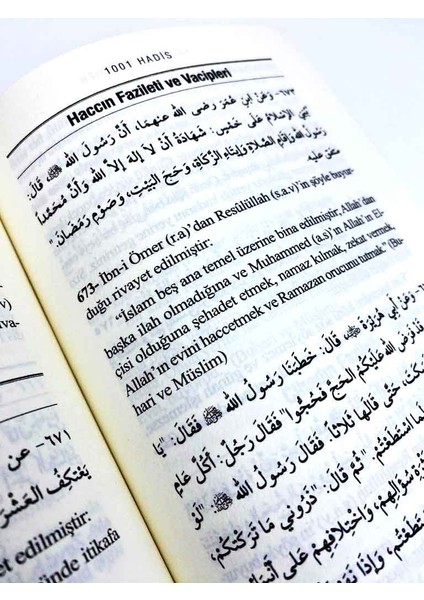 1001 HADİS
Haccın Fazileti ve Vacipleri
٦٧٣- وَعَنِ ابْنِ عُمَرَ رَضِيَ اللهُ عَنْهُمَا، أَنَّ رَسُولَ اللهِ ﷺ قَالَ:
بُنِيَ الْإِسْلَامُ عَلَى خَمْسٍ: شَهَادَةُ أَنْ لَا إِلَهَ إِلَّا اللهُ وَأَنَّ مُحَمَّداً
رَسُولُ اللهِ وَإِقَامِ الصَّلَاةِ وَإِيتَاءِ الزَّكَاةِ، وَحَجِّ الْبَيْتِ، وَصَوْمِ رَمَضَانَ."
متفق عليه
673- İbn-i Ömer (r.a)'dan Resûlüllah (s.a.v)'in şöyle buyur-
duğu rivayet edilmiştir:
"İslam beş ana temel üzerine bina edilmiştir; Allah'dan
başka ilah olmadığına ve Muhammed (a.s)'ın Allah'ın El-
çisi olduğuna şehadet etmek, namaz kılmak, zekat vermek,
Allah'ın evini haccetmek ve Ramazan orucunu tutmak" (Bu-
hari ve Müslim)
وَعَنْ أَبِي هُرَيْرَةَ ﷺ قَالَ: خَطَبَنَا رَسُولُ اللهِ ﷺ فَقَالَ: "يَا
قَدْ فَرَضَ اللهُ عَلَيْكُمُ الْحَجَّ فَحُجُّوا" فَقَالَ رَجُلٌ: أَكُلَّ عَامٍ
سَكَتَ، حَتَّى قَالَهَا ثَلَاثاً. فَقَالَ رَسُولُ اللهِ ﷺ: "لَوْ
لَمَا اسْتَطَعْتُمْ." ثُمَّ قَالَ: "ذَرُونِي مَا تَرَكْتُكُمْ،
سُؤَالِهِمْ، وَاخْتِلَافِهِمْ عَلَى
وَإِذَا
٦٧١- عن
يَعْتَكِفُ الْعَشْرَ
edilmiştir:
ünde itikafa